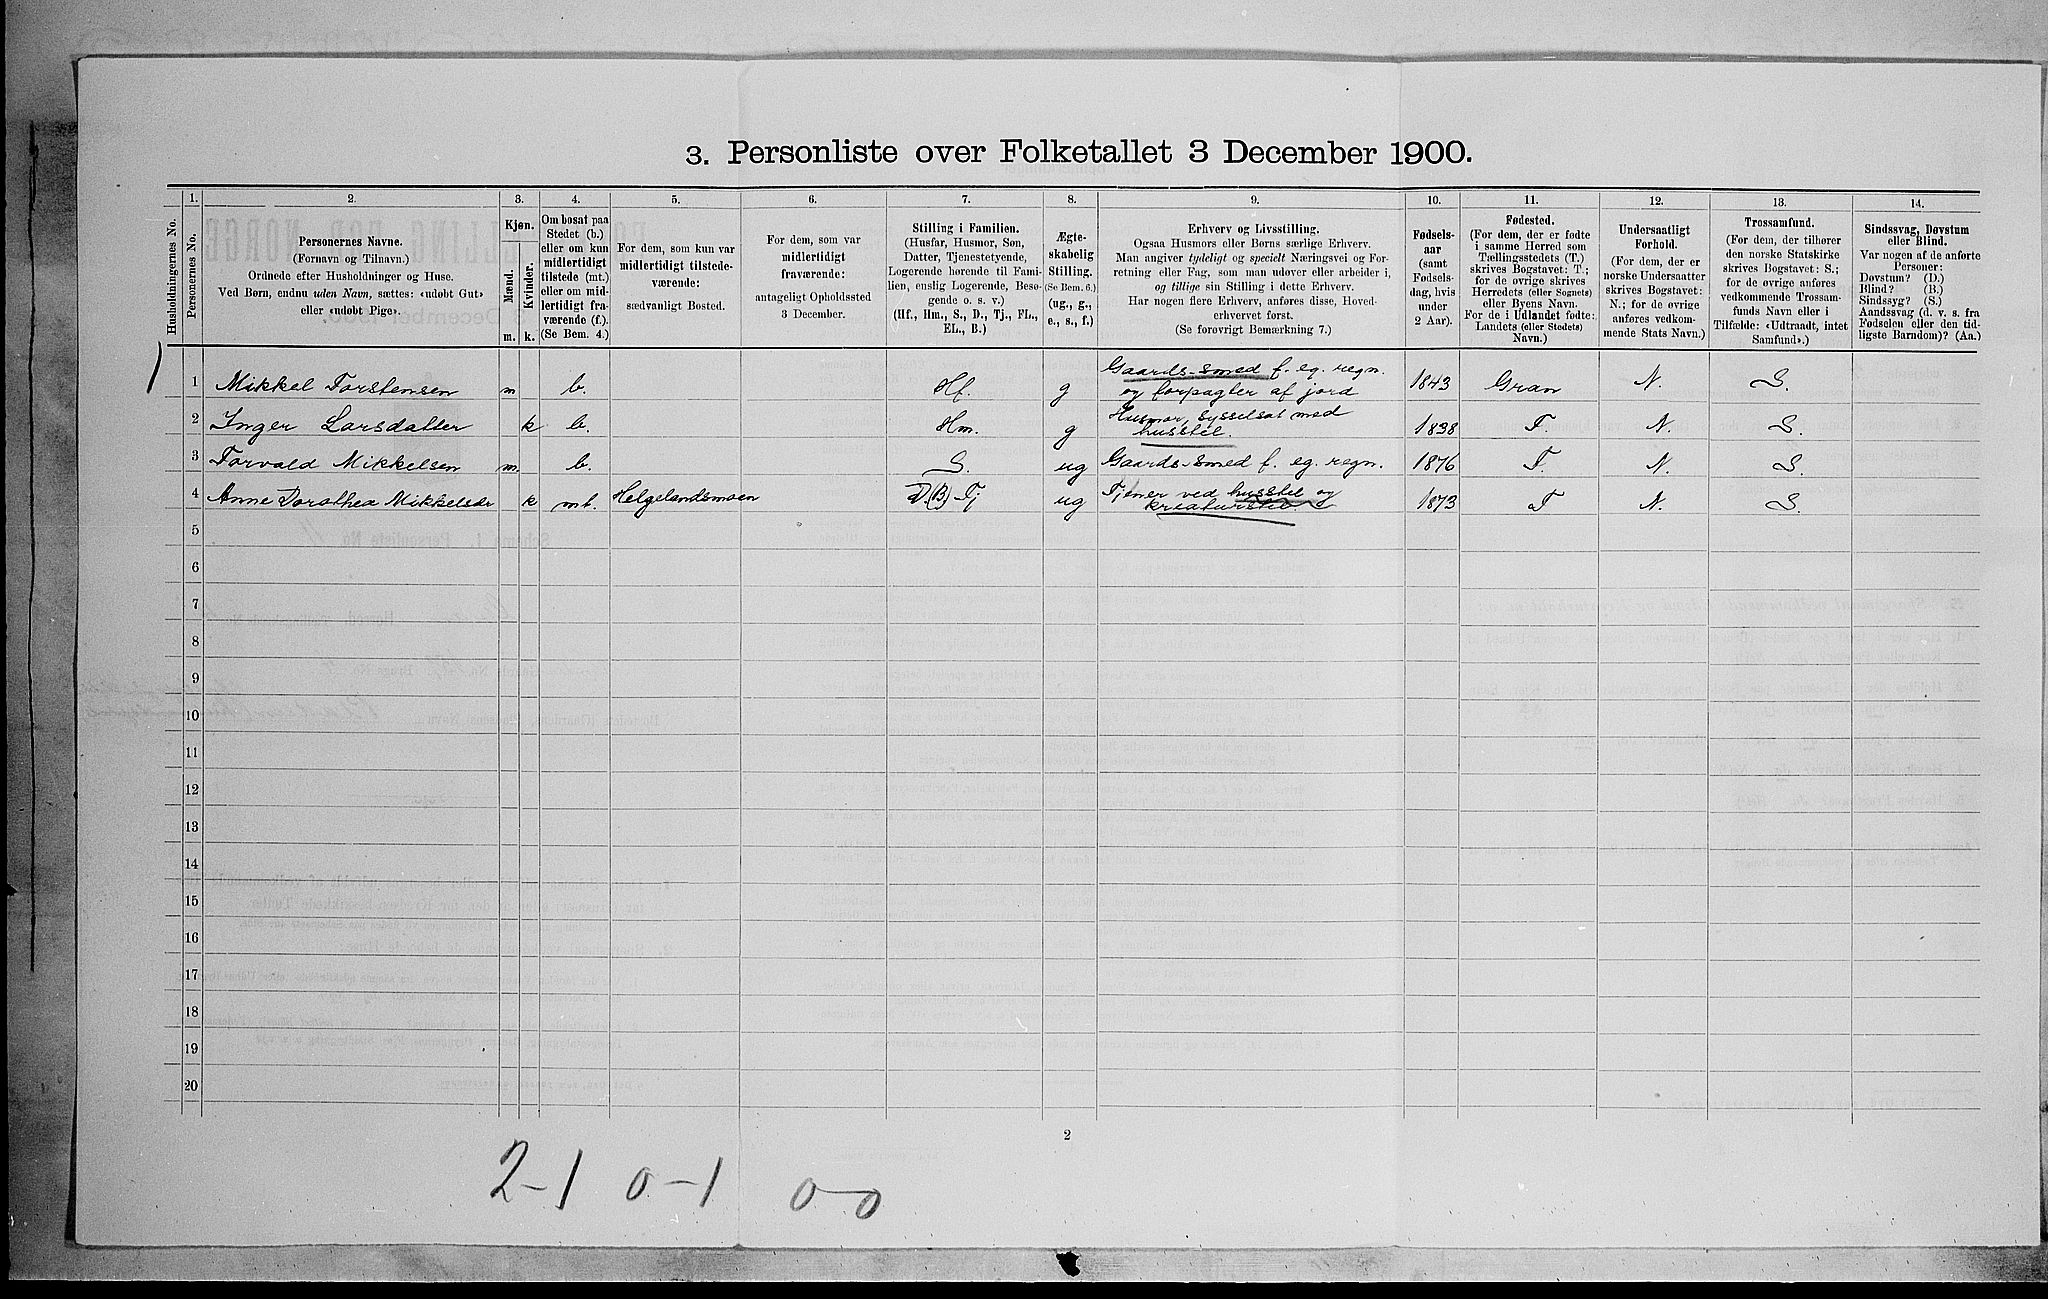 3. Personliste over Folketallet 3 December 1900.
Husholdningernes No.
1.
Personernes No.
2.
Personernes Navne.
(Fornavn og Tilnavn.)
Ordnede efter Husholdninger og Huse.
Ved Børn, endnu uden Navn, sættes: «udøbt Gut»
eller «udøbt Pige».
3.
Kjøn.
Mænd.
Kvinder.
m. k.
4.
Om bosat paa
Stedet (b.)
eller om kun
midlertidigt
tilstede (mt.)
eller om mid-
lertidigt fra-
værende (f.)
(Se Bem. 4.)
5.
For dem, som kun var
midlertidigt tilstede-
værende:
sædvanligt Bosted.
6.
For dem, som var
midlertidigt
fraværende:
antageligt Opholdssted
3 December.
7.
Stilling i Familien.
(Husfar, Husmor, Søn,
Datter, Tjenestetyende,
Logerende hørende til Fami-
lien, enslig Logerende, Besø-
gende o. s. v.)
(Hf., Hm., S., D., Tj., FL.,
EL., B.)
8.
Ægte-
skabelig
Stilling.
(Se Bem. 6.)
(ug., g.,
e., s., f.)
9.
Erhverv og Livsstilling.
Ogsaa Husmors eller Børns særlige Erhverv.
Man angiver tydeligt og specielt Næringsvei og For-
retning eller Fag, som man udøver eller arbeider i,
og tillige sin Stilling i dette Erhverv.
Har nogen flere Erhverv, anføres disse, Hoved-
erhvervet først.
(Se forøvrigt Bemærkning 7.)
10.
Fødsels-
aar
(samt
Fødsels-
dag, hvis
under
2 Aar).
11.
Fødested.
(For dem, der er fødte
i samme Herred som
Tællingsstedets (T.)
skrives Bogstavet: T.;
for de øvrige skrives
Herredets (eller Sognets)
eller Byens Navn.
For de i Udlandet fødte:
Landets (eller Stedets)
Navn.)
12.
Undersaatligt
Forhold.
(For dem, der er
norske Undersaatter
skrives Bogstavet:
N.; for de øvrige
anføres vedkom-
mende Stats Navn.)
13.
Trossamfund.
(For dem, der tilhører
den norske Statskirke
skrives Bogstavet: S.;
for de øvrige anføres
vedkommende Trossam-
funds Navn eller i
Tilfælde: «Udtraadt, intet
Samfund».)
14.
Sindssvag, Døvstum
eller Blind.
Var nogen af de anførte
Personer:
Døvstum? (D.)
Blind? (B.)
Sindssyg? (S.)
Aandssvag (d. v. s. fra
Fødselen eller den tid-
ligste Barndom)? (Aa.)
1 1 Mikkel Torstensen m b. Hf. g Gaards-smed f. eg. regn. og forpagter af jord 1843 Gran N. S.
2 Inger Larsdatter k b. Hm. g Husmor, sysselsat med husstel. 1838 T. N. S.
3 Torvald Mikkelsen m b. S. ug Gaards-smed f. eg. regn. 1876 T. N. S.
4 Anne Dorothea Mikkelsdr k mt. Helgelandsmoen D.(B) Tj ug Tjener ved husstel og kreaturstel 1873 T N. S.
5
6
7
8
9
10
11
12
13
14
15
16
17
18
19
20
2
2-1 0-1 0-0